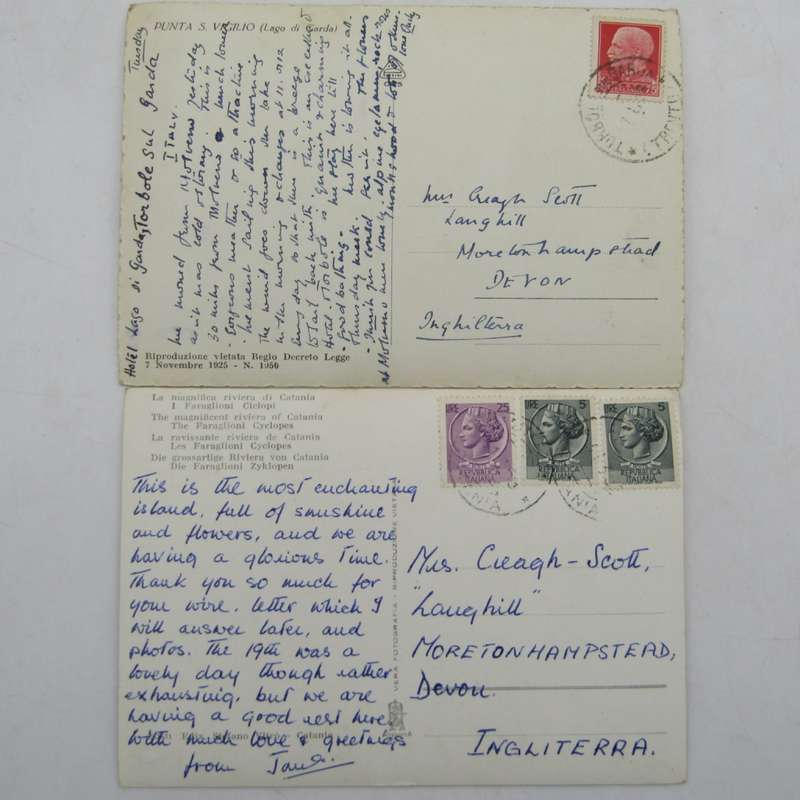 PUNTA S. VIGILIO (Lago di Garda)
Tuesday
Hotel Lago di Garda, Torbole sul Garda
ITALY
We moved from Molveno yesterday
as it was cold & stormy. This is
30 miles from Molveno & much lower
- Gorgeous weather & so attractive
We went sailing this morning
The wind goes down the lake
in the morning & changes at 11. or 12
every day so that there is a breeze
to sail back with. This is an excellent
Hotel. Torbole is quaint & charming
- Good bathing - We stay here till
Thursday week. is loving it all.
The flowers
at Molveno were lovely, alpine
Riproduzione vietata Regio Decreto Legge
7 Novembre 1925 - N. 1950
TORBOLE
Mrs Creagh Scott
Langhill
Moretonhampstead
DEVON
Inghilterra
La magnifica riviera di Catania
I Faraglioni Ciclopi
The magnificent riviera of Catania
The Faraglioni Cyclopes
La ravissante riviera de Catania
Les Faraglioni Cyclopes
Die grossartige Riviera von Catania
Die Faraglioni Zyklopen
This is the most enchanting
island, full of sunshine
and flowers, and we are
having a glorious time.
Thank you so much for
your wire, letter which I
will answer later, and
photos. The 19th was a
lovely day though rather
exhausting, but we are
having a good rest here.
With much love & greetings
from
Catania
VERA FOTOGRAFIA - RIPRODUZIONE VIETATA
LIRE 25
REPUBBLICA
ITALIANA
LIRE 5
REPUBBLICA
ITALIANA
LIRE 5
REPUBBLICA
ITALIANA
Mrs. Creagh-Scott,
"Langhill"
MORETONHAMPSTEAD,
Devon.
INGLITERRA.